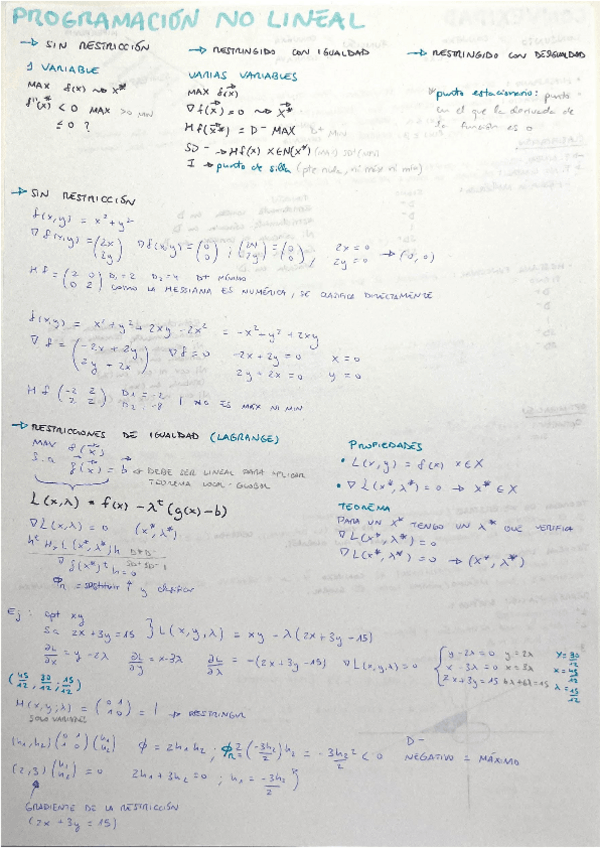 PROGRAMACIÓN NO LINEAL
→ SIN RESTRICCIÓN
→ RESTRINGIDO CON IGUALDAD
→ RESTRINGIDO CON DESIGUALDAD
1 VARIABLE
MAX f(x) ⇝ x*
f''(x*) < 0 MAX >0 MIN
≤ 0 ?
VARIAS VARIABLES
MAX f(x)
∇f(x) = 0 ⇝ x*
Hf(x*) = D⁻ MAX D⁺ MIN
SD⁻ → Hf(x) x∈N(x*) (MAX) SD⁺ (MIN)
I → punto de silla (pte nada, ni máx ni mín)
* punto estacionario: punto
en el que la derivada de
la función es 0
→ SIN RESTRICCIÓN
f(x,y) = x² + y²
∇f(x,y) = (2x 2y) ∇f(x,y) = (0 0) ; (2x 2y) = (0 0), 2x = 0 2y = 0 → (0,0)
Hf = (2 0 0 2) D₁ = 2 D₂ = 4 D+ MÍNIMO
COMO LA HESSIANA ES NUMÉRICA, SE CLASIFICA DIRECTAMENTE
∇f = (-2x + 2y 2y - 2x) ∇f = 0 -2x + 2y = 0 x = 0
2y - 2x = 0 y = 0
Hf (-2 2 2 2) D₁ = -2
D₂ = -8 I NO ES MAX NI MIN
→ RESTRICCIONES DE IGUALDAD (LAGRANGE)
MAX f(x)
s.a g(x) = b → DEBE SER LINEAL PARA APLICAR
TEOREMA LOCAL-GLOBAL
L(x,λ) = f(x) - λᵗ(g(x) - b)
∇L(x,λ) = 0 (x*,λ*)
∇g(x*)ᵗ h = 0
= sustituir y clasificar
PROPIEDADES
• ∇L(x*,λ*) = 0 → x* ∈ X
TEOREMA
PARA UN x* TENGO UN λ* QUE VERIFICA
∇L(x*,λ*) = 0
∇L(x*,λ*) = 0 → (x*,λ*)
Ej: opt xy
s.a 2x + 3y = 15 } L(x,y,λ) = xy - λ(2x + 3y - 15)
∂L/∂x = y - 2λ ∂L/∂y = x - 3λ ∂L/∂λ = -(2x + 3y - 15) ∇L(x,y,λ) = 0
y - 2λ = 0 y = 2λ
x - 3λ = 0 x = 3λ
2x + 3y = 15 6λ + 6λ = 15
y = 30/12
x = 45/12
λ = 15/12
(45/12, 30/12, 15/12)
H(x,y,λ) = (0 1 1 0) = I → RESTRINGIR
SOLO VARIABLES
(h₁,h₂)(0 1 1 0)(h₁ h₂) φ = 2h₁h₂ ; φᵣ = 2(-3h₂/2)h₂ = -3h₂² < 0
D-
NEGATIVO = MÁXIMO
(2,3)(h₁ h₂) = 0 2h₁ + 3h₂ = 0 ; h₁ = -3h₂/2
GRADIENTE DE LA RESTRICCIÓN
(2x + 3y = 15)